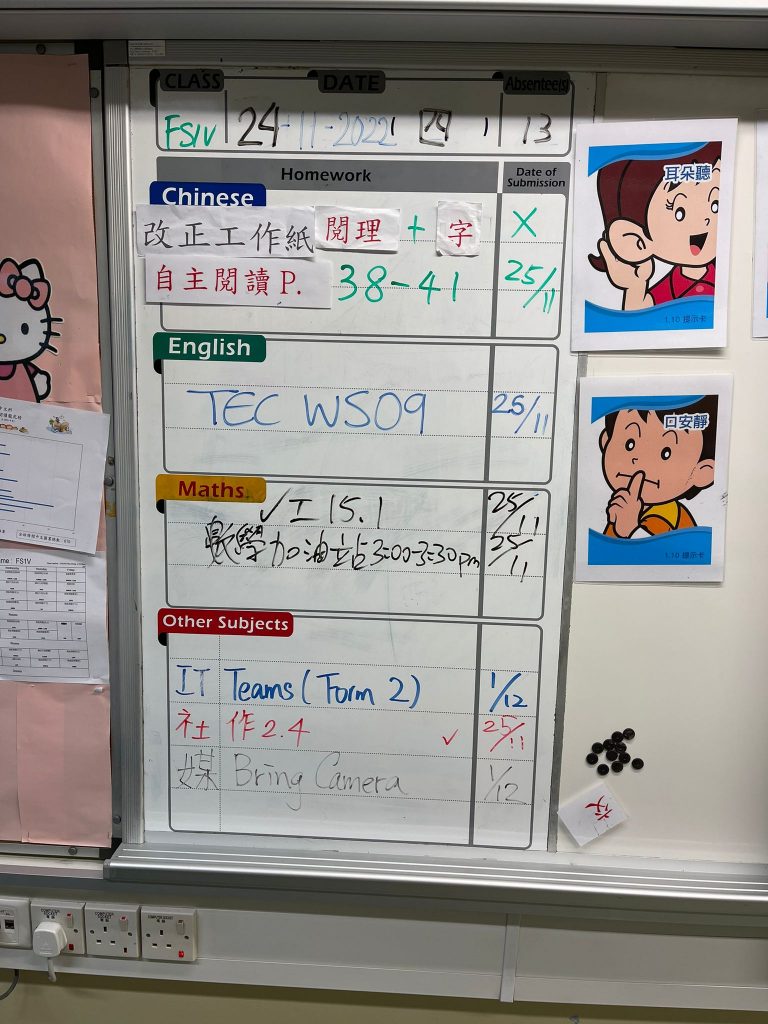 CLASS DATE Absentee(s)
FS1V 24-11-2022 四 13
Homework Date of Submission
Chinese
改正工作紙 閱理 + 字 X
自主閱讀 P. 38-41 25/11
English
TEC WS09 25/11
Maths
✓工 15.1 25/11
數學加油站 3:00-3:30pm 25/11
Other Subjects
IT Teams (Form 2) 1/12
社 作 2.4 ✓ 25/11
媒 Bring Camera 1/12
耳朵聽
1.10 提示卡
口安靜
1.10 提示卡
FS1V